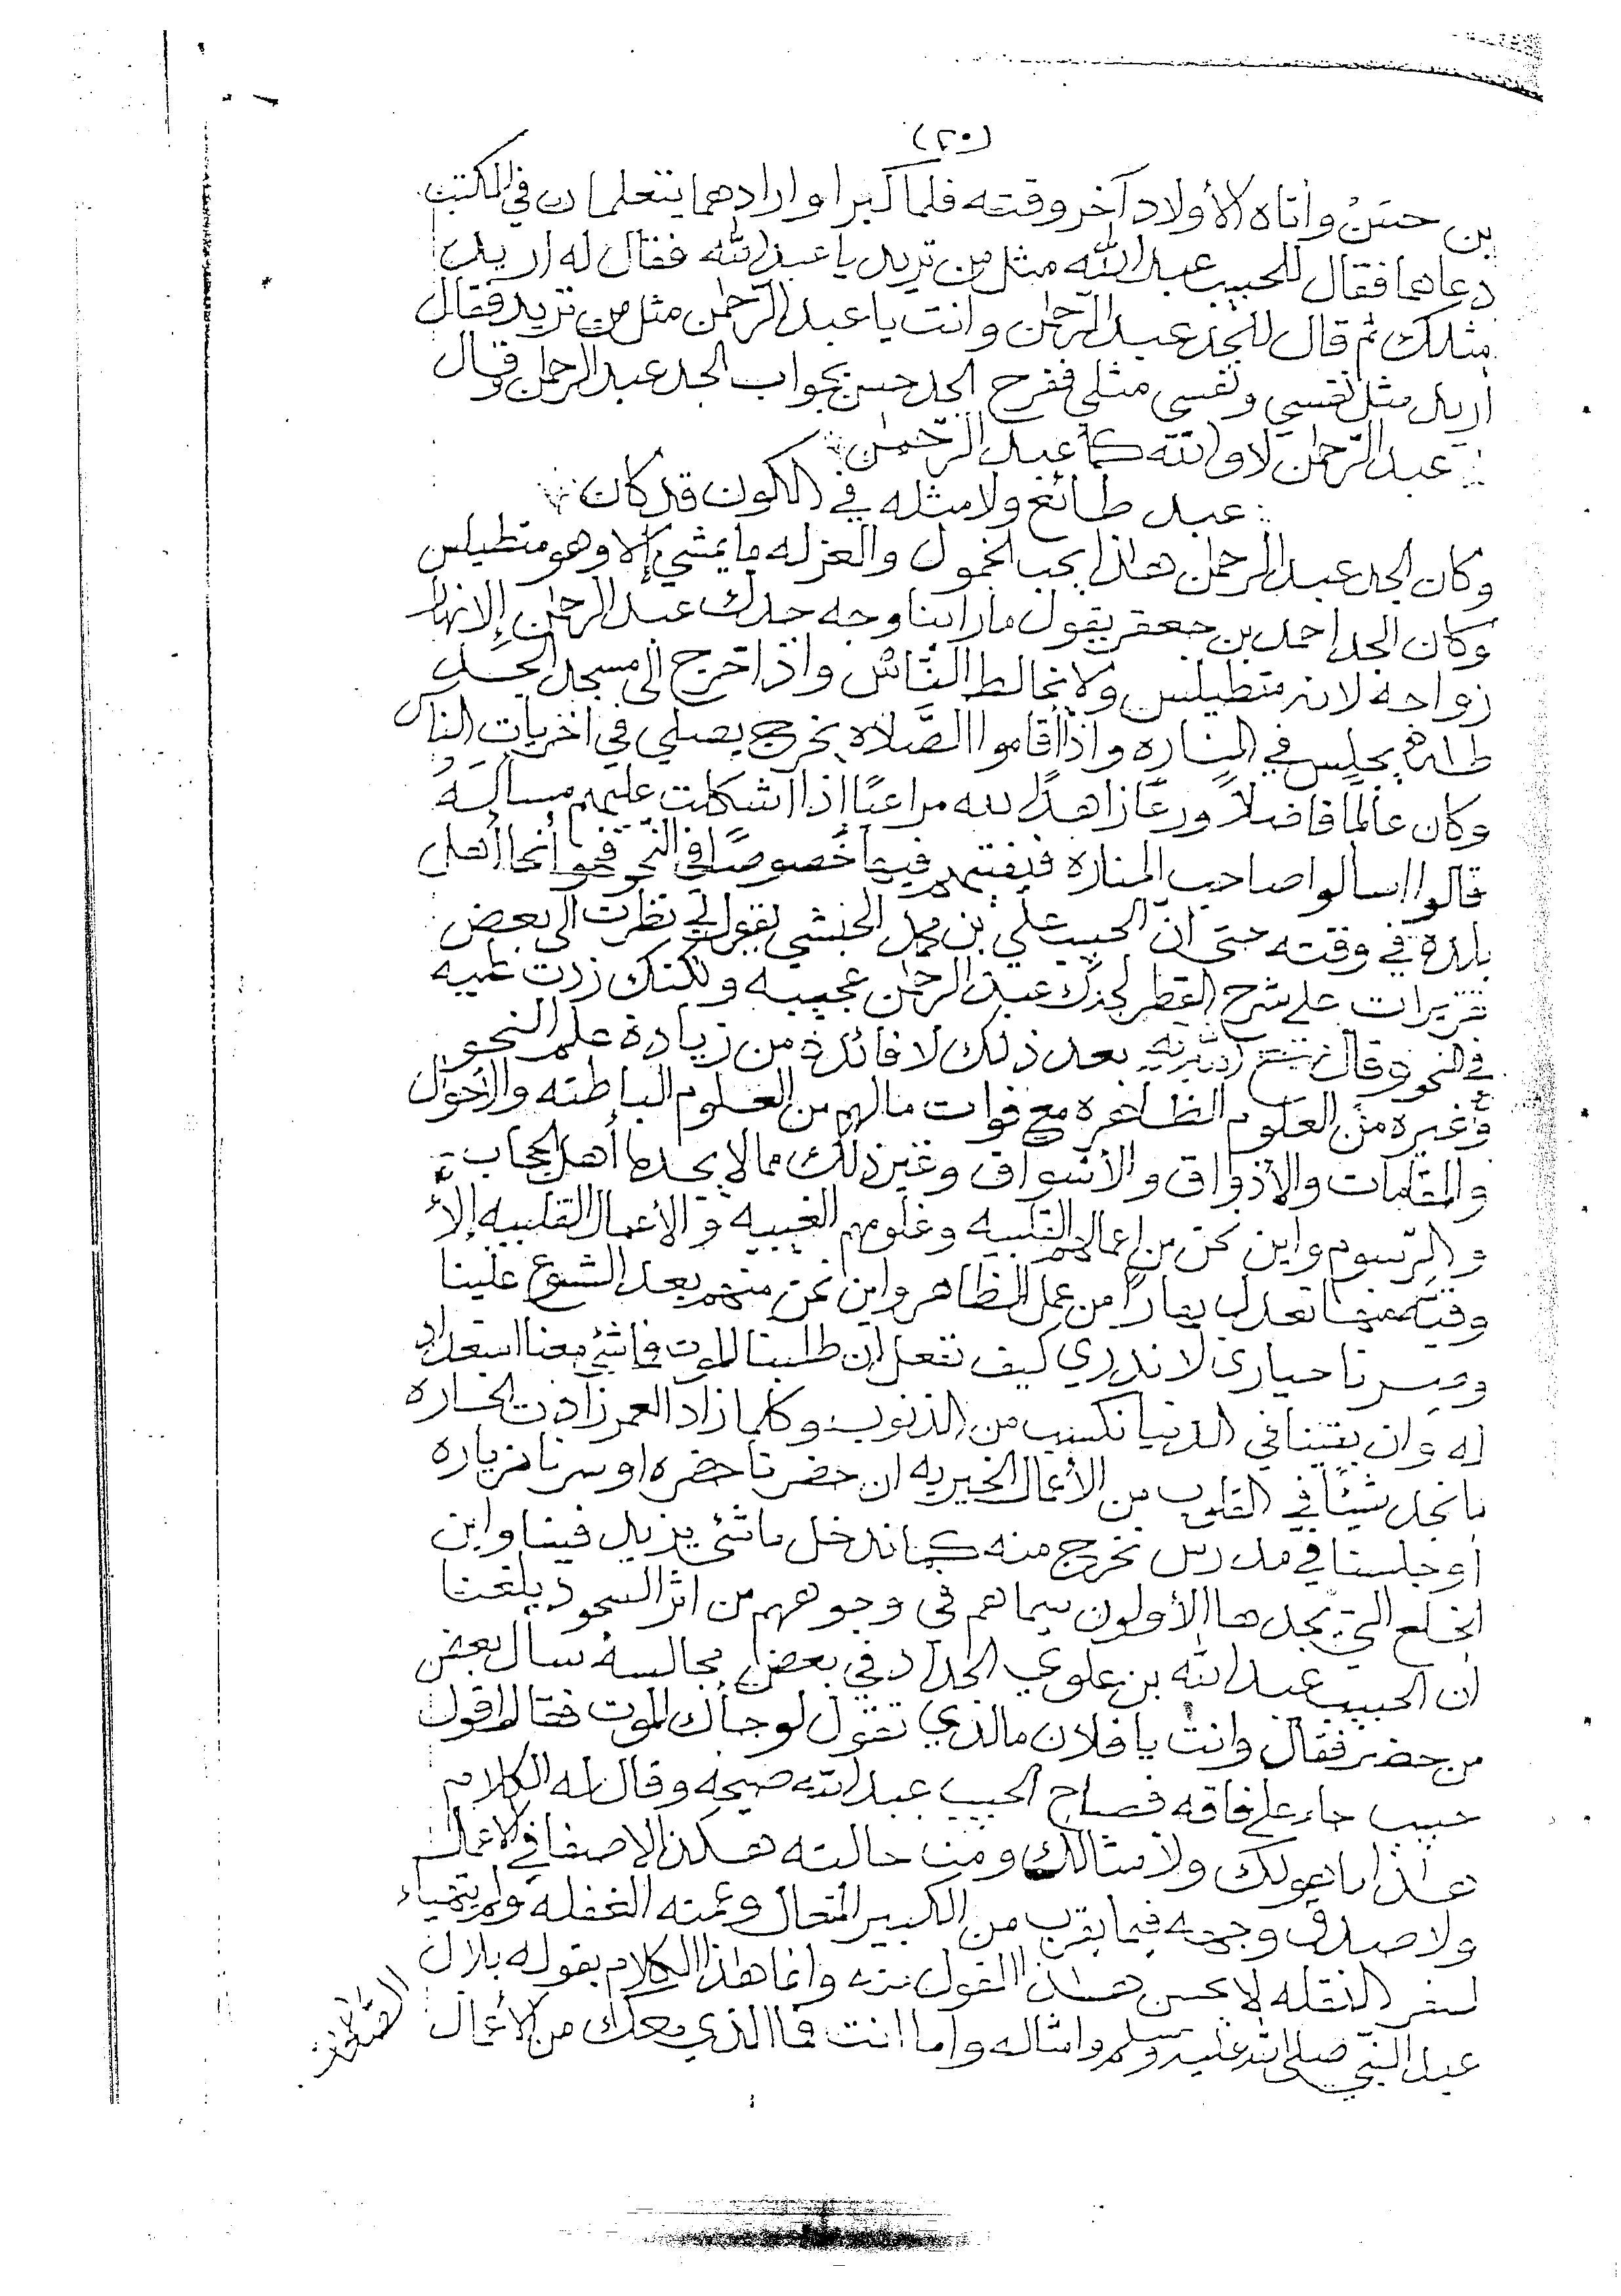 (٢٠)
بن حسن وأتاه الأولاد آخر وقته فلما كبرا وارادهما يتعلمان في المكتب
دعاهما فقال للحبيب عبد الله مثل من تريد يا عبد الله فقال له اريد
مثلك ثم قال للجد عبد الرحمن وانت يا عبد الرحمن مثل من تريد فقال
أريد مثل نفسي ونفسي مثلي ففرح الجد حسن بجواب الجد عبد الرحمن وقال
عبد الرحمن لا والله كما عبد الرحمن
عبد طائع ولا مثله في الكون قد كان
وكان الجد عبد الرحمن هذا يحب الخمول والعزله ما يمشي إلا وهو متطيلس
وكان الجد احمد بن جعفر يقول ما راينا وجه جدك عبد الرحمن إلا نهار
زواجه لانه متطيلس ولا يخالط الناس واذا خرج الى مسجد الجد
طه يجلس في المناره واذا أقاموا الصلاة يخرج يصلي في اخريات الناس
وكان عالما فاضلاً ورعًا زاهدًا لله مراعيًا اذا اشكلت عليهم مسألة
قالوا اسالوا صاحب المناره فيفتيهم فيها خصوصًا في النحو فهو أنحا أهل
بلده في وقته حتى ان الحبيب علي بن محمد الحبشي يقول لي نظرت الى بعض
تقريرات على شرح القطر لجدك عبد الرحمن عجيبه ولكنك زدت عليه
في النحو وقال بعد ذلك لا فائدة من زيادة علم النحو
وغيره من العلوم الظاهره مع فوات مالهم من العلوم الباطنه والأحوال
والمقامات والأذواق والأشواق وغير ذلك مما لا يجدها أهل الحجاب
والرسوم واين نحن من اعمالهم القلبيه وعلومهم الغيبيه والأعمال القلبيه إلا
وقيه منها تعدل بهارًا من عمل الظاهر واين نحن منهم بعد الشوع علينا
وصرنا حيارى لا ندري كيف نفعل ان طلبنا للموت ما شي معنا استعداد
له وان بقينا في الدنيا نكسب من الذنوب وكلما زاد العمر زادت الخساره
ما نجد شيئًا في القلوب من الأعمال الخيريه ان حضرنا حضره او سرنا زياره
أو جلسنا في مدرس نخرج منه كما ندخل ما شي يزيد فينا واين
الخلع التي يجدها الأولون سيماهم في وجوههم من اثر السجود بلغنا
ان الحبيب عبد الله بن علوي الحداد في بعض مجالسه سال بعض
من حضر فقال وانت يا فلان مالذي تقول لو جاك الموت فقال اقول
حبيب جاء على فاقه فصاح الحبيب عبد الله صيحه وقال له الكلام
هذا ما هو لك ولا مثالك ومن حالته هكذا لا صفا في الاعمال
ولا صدق وجهه فيما يقرب من الكبير المتعال وعمته الغفله ولم يتهياء
لسفر النقله لا يحسن هذا القول منه وانما هذا الكلام يقوله بلال
عبد النبي صلى الله عليه وسلم وامثاله واما انت فما الذي معك من الأعمال
الصالحه